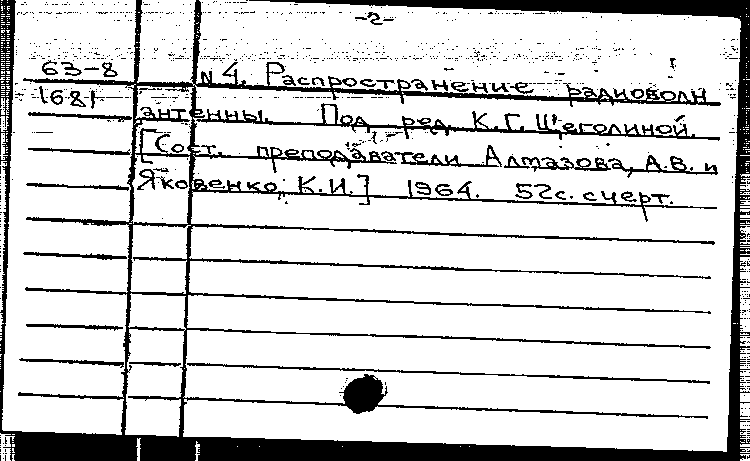 -2-
63-8 N 4. Распространение радиоволн
1681 антенны. Под ред. К.Г. Щеголиной.
[Сост. преподаватели Алмазова, А.В. и
Яковенко, К.И.] 1964. 52с. с черт.